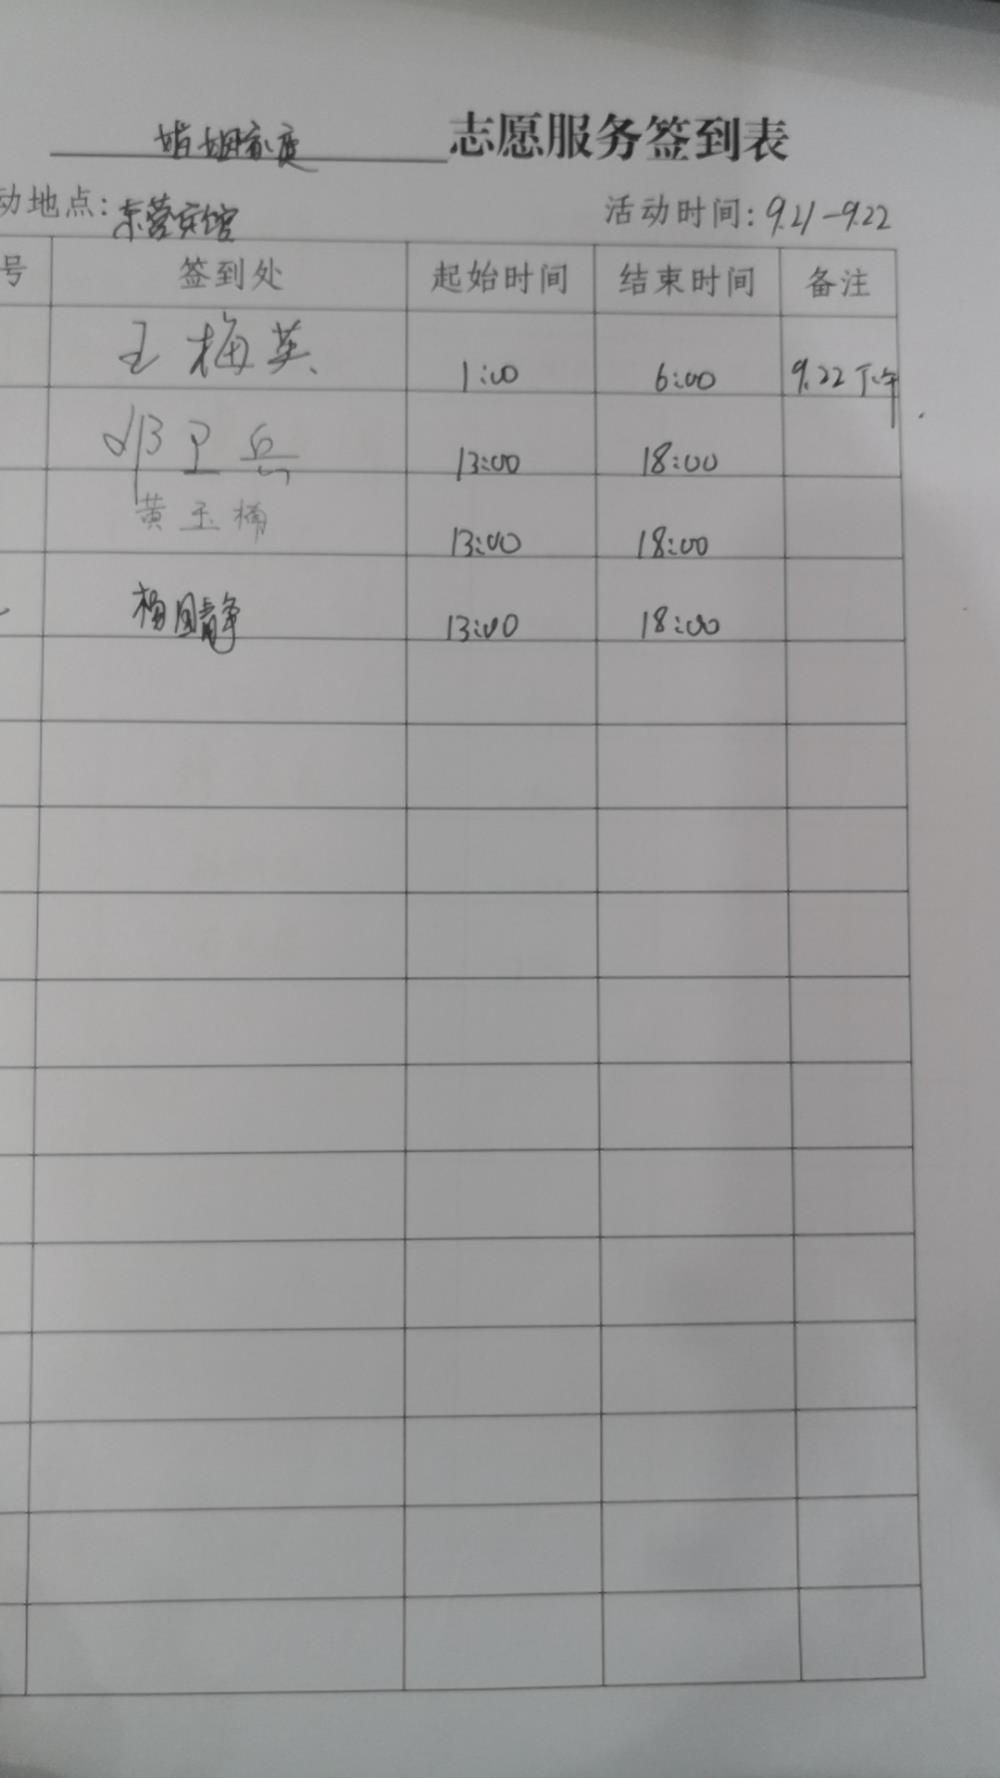 婚姻家庭志愿服务签到表
动地点: 东营宾馆 活动时间: 9.21-9.22
号 签到处 起始时间 结束时间 备注
王梅英 1:00 6:00 9.22下午
13:00 18:00
黄玉楠 13:00 18:00
杨 静 13:00 18:00